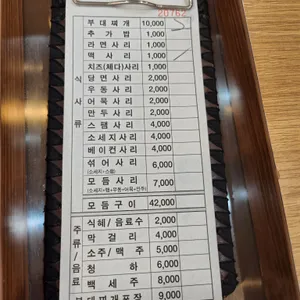 20762
부대찌개 10,000
추가밥 1,000
라면사리 1,000
떡사리 1,000
치즈(체다)사리 1,000
당면사리 2,000
우동사리 2,000
어묵사리 2,000
만두사리 2,000
스팸사리 4,000
소세지사리 4,000
베이컨사리 4,000
섞어사리 6,000
(소세지+스팸)
모듬사리 7,000
모듬구이 42,000
식사류
식혜/음료수 2,000
막걸리 4,000
소주/맥주 5,000
청하 6,000
백세주 8,000
주류/음료
부대찌개포장 9,000